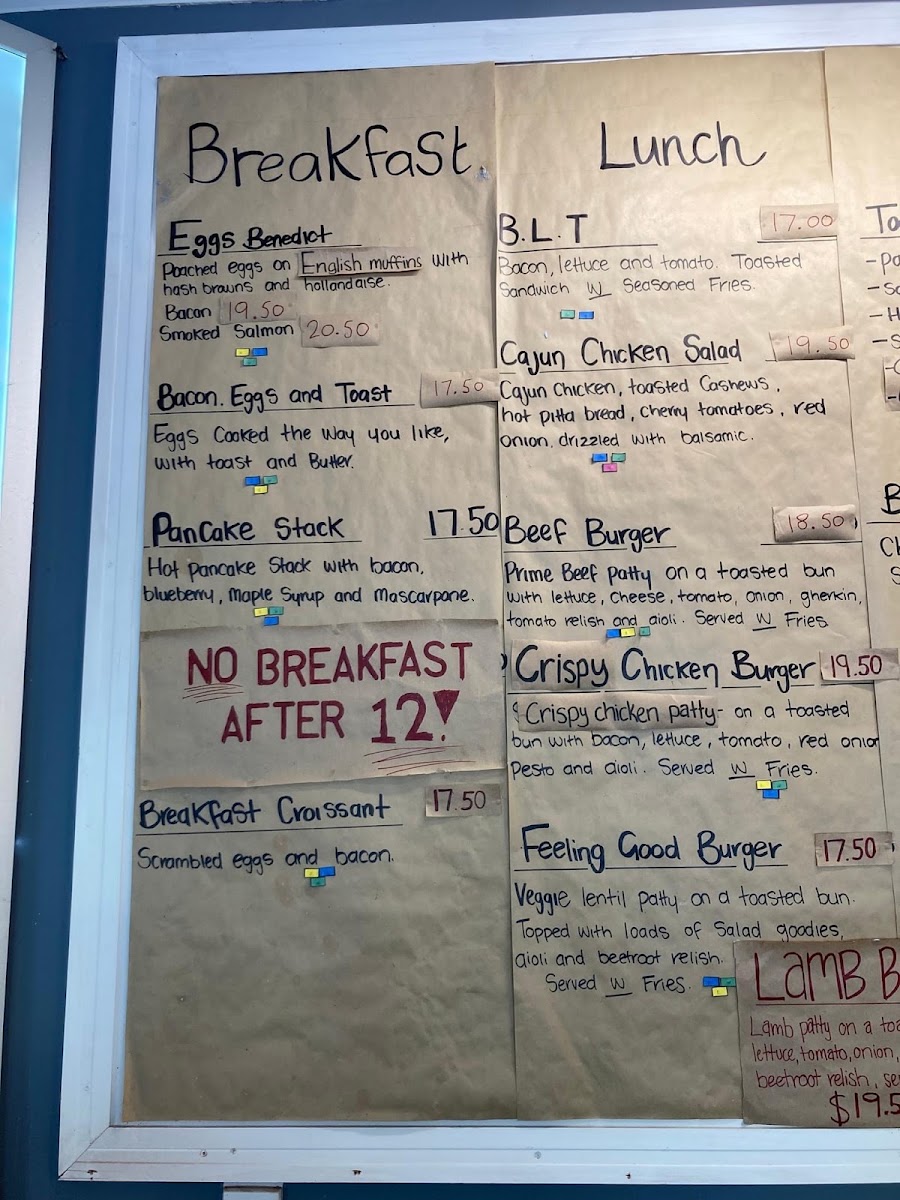 Breakfast.
Eggs Benedict
Poached eggs on English muffins with
hash browns and hollandaise.
Bacon 19.50
Smoked Salmon 20.50
Bacon. Eggs and Toast 17.50
Eggs Cooked the way you like,
with toast and Butter.
Pancake Stack 17.50
Hot pancake Stack with bacon,
blueberry, Maple Syrup and Mascarpone.
NO BREAKFAST
AFTER 12!
Breakfast Croissant 17.50
Scrambled eggs and bacon.
Lunch
B.L.T 17.00
Bacon, lettuce and tomato. Toasted
Sandwich W Seasoned Fries.
Cajun Chicken Salad 19.50
Cajun Chicken, toasted Cashews,
hot pitta bread, cherry tomatoes, red
onion. drizzled with balsamic.
Beef Burger 18.50
Prime Beef patty on a toasted bun
with lettuce, cheese, tomato, onion, gherkin,
tomato relish and aioli. Served W Fries
Crispy Chicken Burger 19.50
Crispy chicken patty- on a toasted
bun with bacon, lettuce, tomato, red onion
Pesto and aioli. Served W Fries.
Feeling Good Burger 17.50
Veggie lentil patty on a toasted bun.
Topped with loads of Salad goodies,
aioli and beetroot relish.
Served W Fries.
LAMB B
Lamb patty on a toa
lettuce, tomato, onion,
beetroot relish, se
$19.5